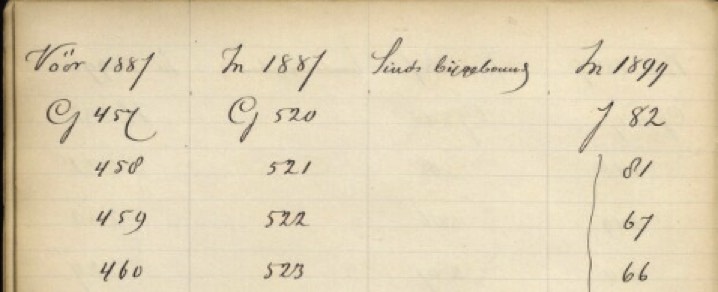 Vóór 1887 In 1887 Sinds bijgebouwd In 1899
G 457 G 520 J 82
458 521 81
459 522 67
460 523 66